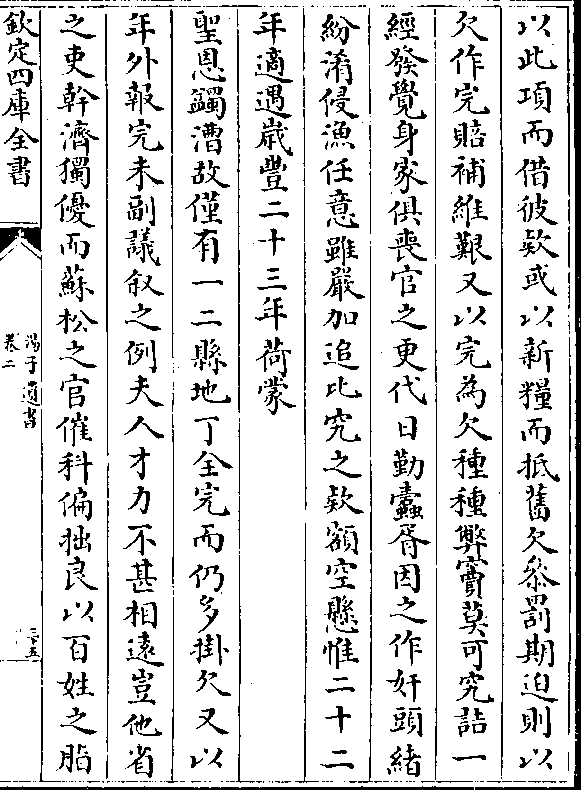 以此項而借彼欵或以新糧而抵舊欠叅罰期迫則以
欠作完賠補維艱又以完為欠種種弊竇莫可究詰一
經發覺身家俱喪官之更代日勤蠹胥因之作奸頭緒
紛淆侵漁任意雖嚴加追比究之欵額空懸惟二十二
年適遇歲豐二十三年荷蒙
聖恩蠲漕故僅有一二縣地丁全完而仍多掛欠又以
年外報完未副議敘之例夫人才力不甚相遠豈他省
之吏幹濟獨優而蘇松之官催科偏拙良以百姓之脂
欽定四庫全書
湯子遺書
卷二
三五